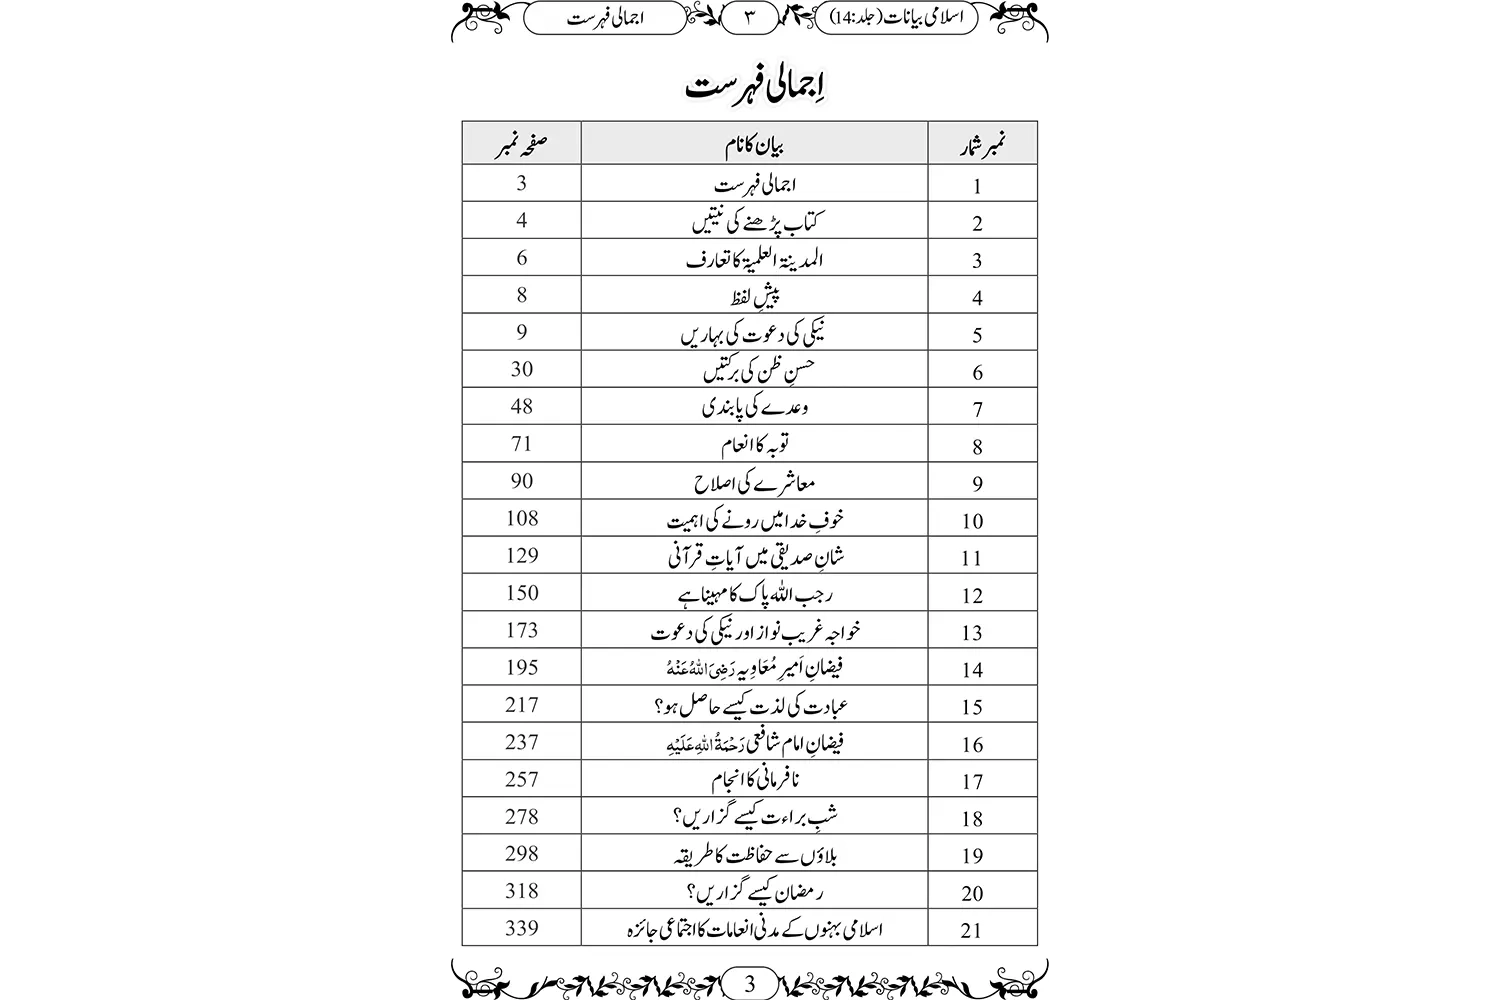 اسلامی بیانات (جلد:14) ۳ اجمالی فہرست
اِجمالی فہرست
نمبر شمار بیان کا نام صفحہ نمبر
1 اجمالی فہرست 3
2 کتاب پڑھنے کی نیتیں 4
3 المدینۃ العلمیۃ کا تعارف 6
4 پیشِ لفظ 8
5 نیکی کی دعوت کی بہاریں 9
6 حسنِ ظن کی برکتیں 30
7 وعدے کی پابندی 48
8 توبہ کا انعام 71
9 معاشرے کی اصلاح 90
10 خوفِ خدا میں رونے کی اہمیت 108
11 شانِ صدیقی میں آیاتِ قرآنی 129
12 رجب اللہ پاک کا مہینا ہے 150
13 خواجہ غریب نواز اور نیکی کی دعوت 173
14 فیضانِ اَمیرِ مُعَاوِیہ رَضِیَ اللہُ عَنْہُ 195
15 عبادت کی لذت کیسے حاصل ہو؟ 217
16 فیضانِ امام شافعی رَحْمَۃُ اللہِ عَلَیْہِ 237
17 نافرمانی کا انجام 257
18 شبِ براءت کیسے گزاریں؟ 278
19 بلاؤں سے حفاظت کا طریقہ 298
20 رمضان کیسے گزاریں؟ 318
21 اسلامی بہنوں کے مدنی انعامات کا اجتماعی جائزہ 339
3